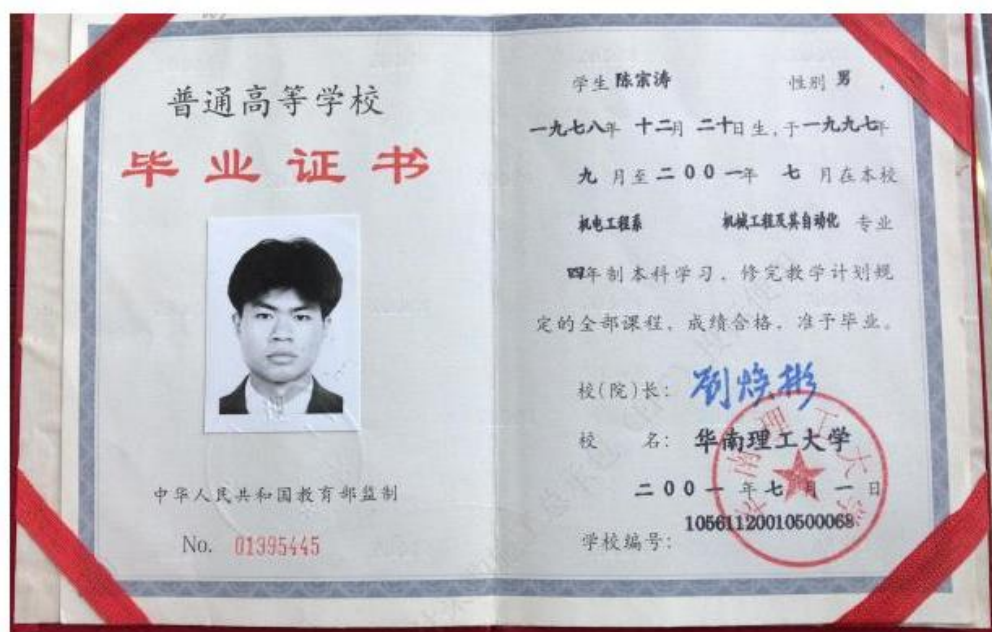 普通高等学校
毕业证书
中华人民共和国教育部监制
No. 01395445
学生 陈宗涛 性别 男 ,
一九七八年 十二月 二十日生,于一九九七年
九 月至二00一年 七 月在本校
机电工程系 机械工程及其自动化 专业
四年制本科学习,修完教学计划规
定的全部课程,成绩合格,准予毕业。
校(院)长: 刘焕彬
校 名: 华南理工大学
二00一年七月一日
学校编号: 105611200105000068
华南理工大学